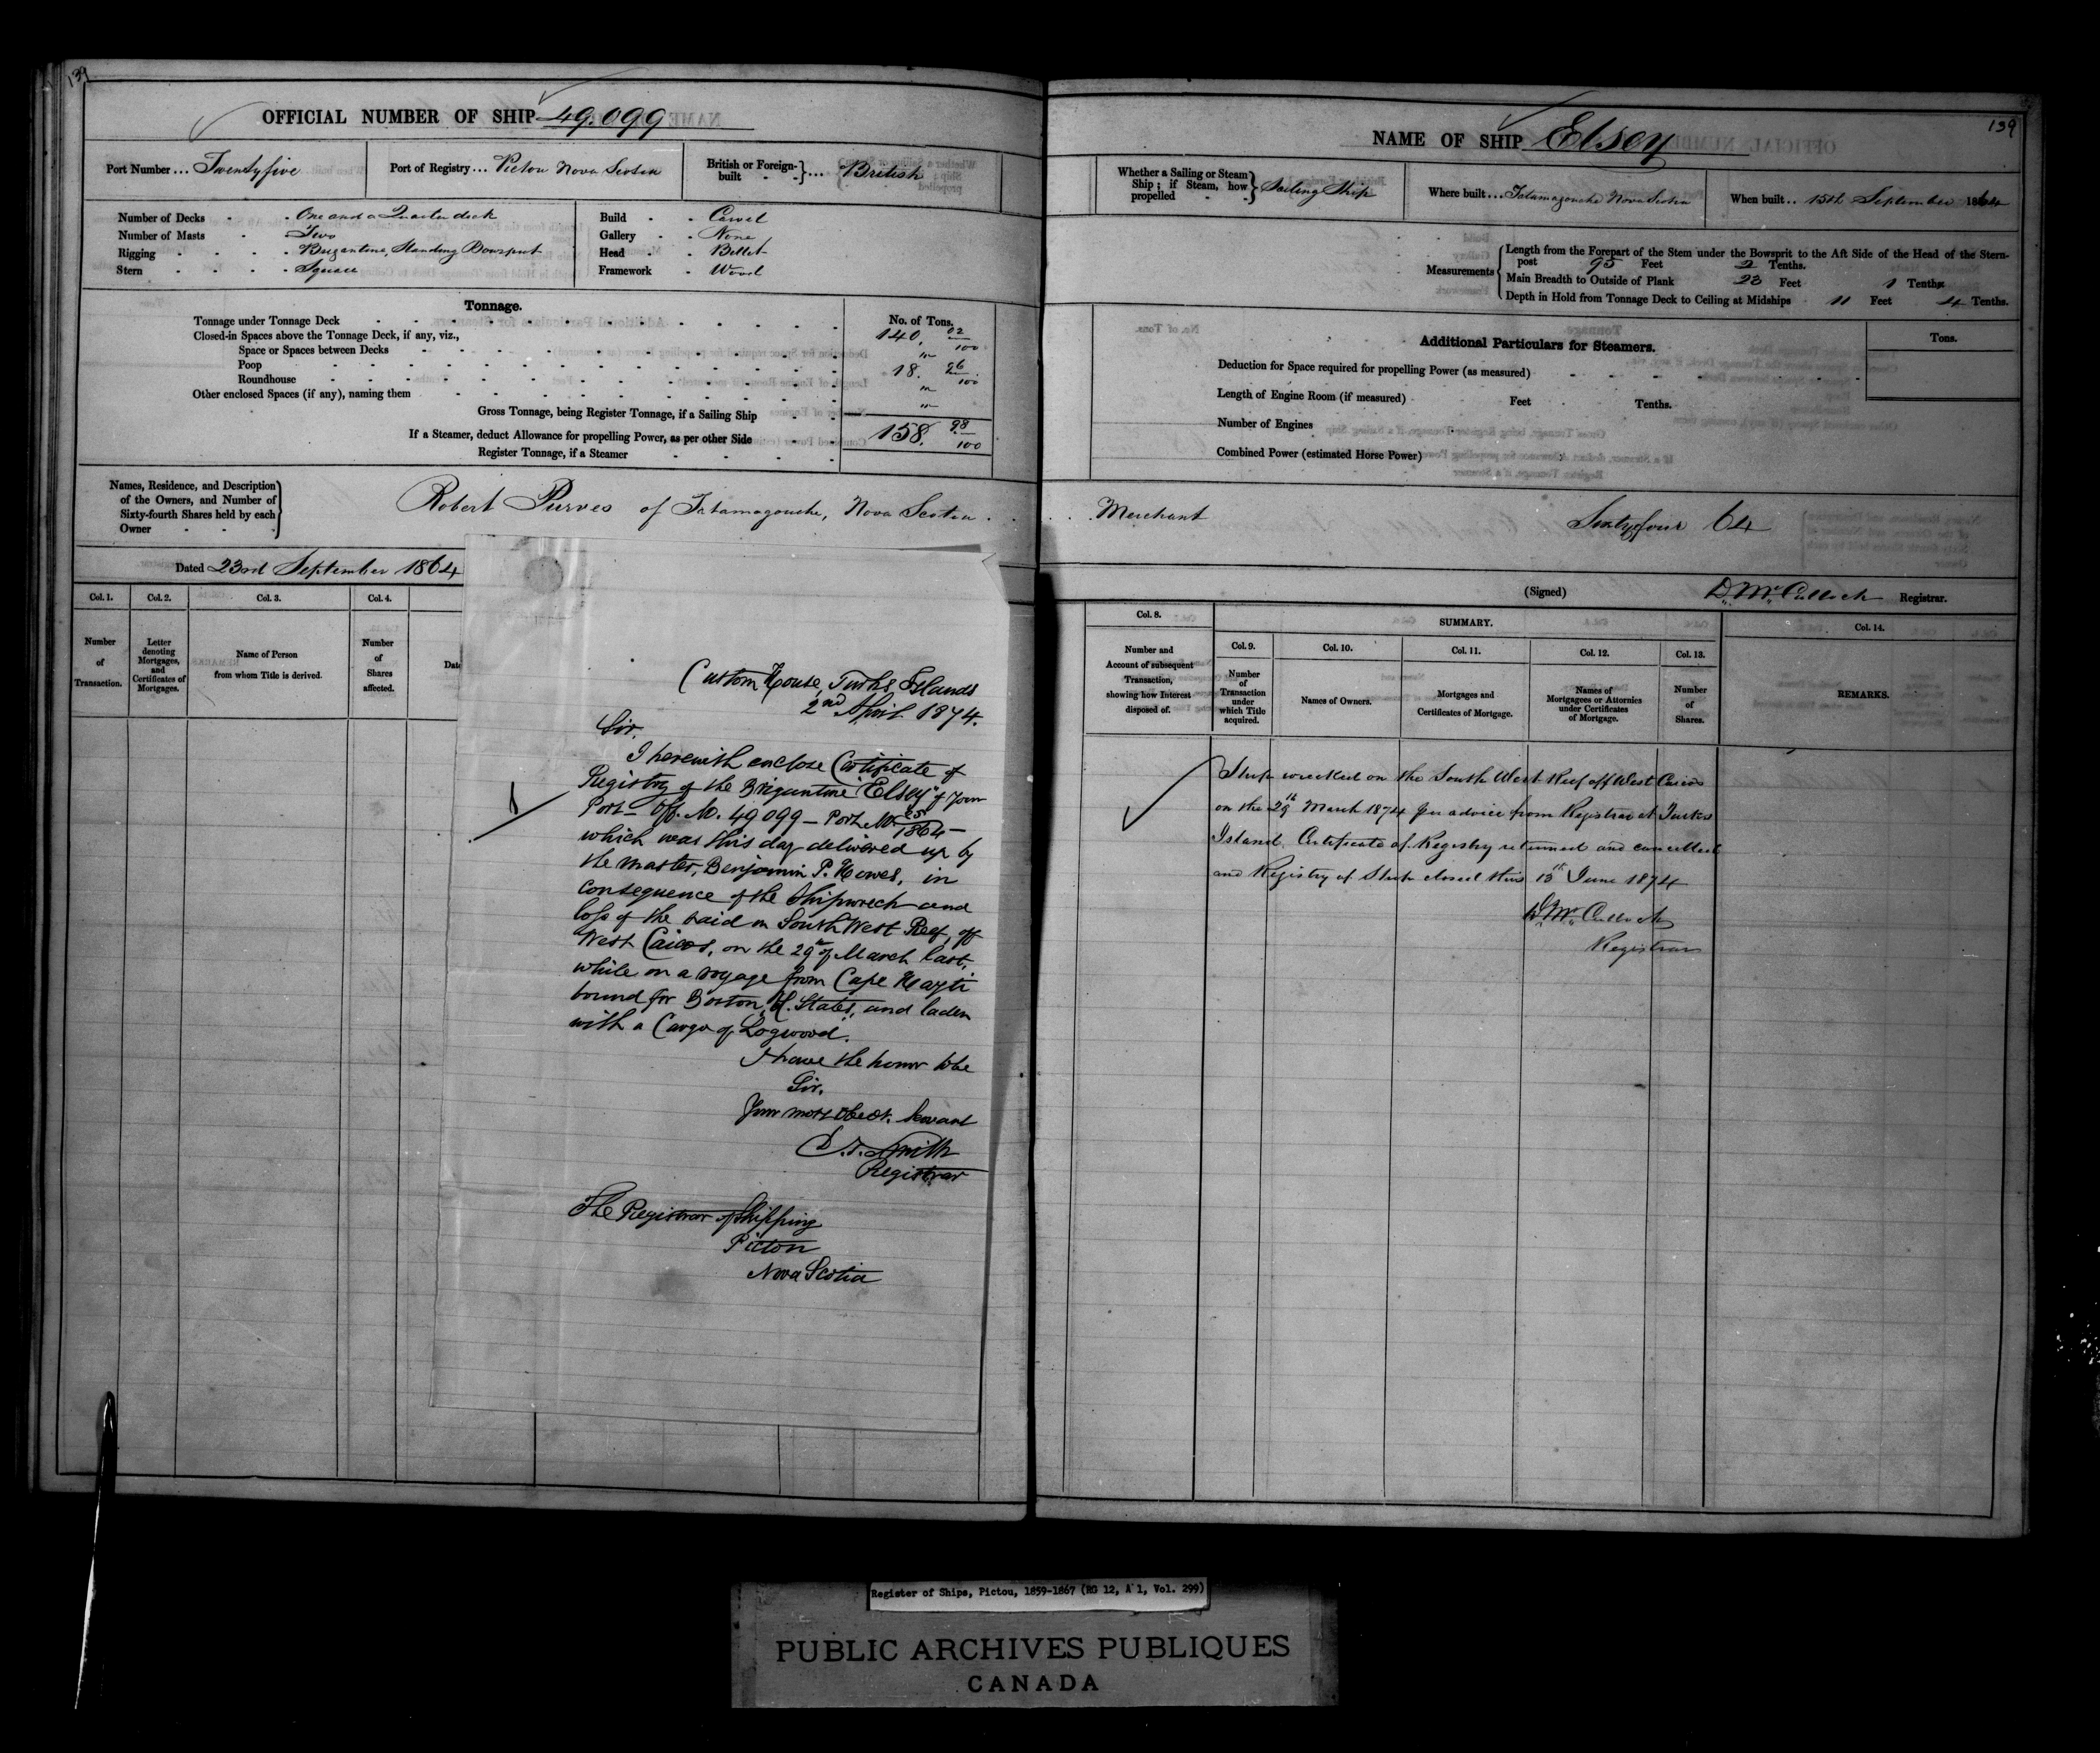 139
OFFICIAL NUMBER OF SHIP 49.099
Port Number ... Twentyfive
Port of Registry ... Pictou Nova Scotia
British or Foreign-built ... British
Number of Decks - - One and a Quarter deck
Number of Masts - Two
Rigging - - - - Brigantine, Standing Bowsprit
Stern - - - - Square
Build - - Carvel
Gallery - - None
Head - - Billet
Framework - Wood
Tonnage.
No. of Tons.
Tonnage under Tonnage Deck 140. 02/100
Closed-in Spaces above the Tonnage Deck, if any, viz.,
Space or Spaces between Decks "
Poop 18. 96/100
Roundhouse "
Other enclosed Spaces (if any), naming them "
Gross Tonnage, being Register Tonnage, if a Sailing Ship 158. 98/100
If a Steamer, deduct Allowance for propelling Power, as per other Side
Register Tonnage, if a Steamer
Names, Residence, and Description
of the Owners, and Number of
Sixty-fourth Shares held by each
Owner
Robert Purves of Tatamagouche, Nova Scotia
Dated 23rd September 1864
Col. 1.
Col. 2.
Col. 3.
Col. 4.
Number of Transaction.
Letter denoting Mortgages, and Certificates of Mortgages.
Name of Person from whom Title is derived.
Number of Shares affected.
Custom House, Turks Islands
2nd April 1874.
Sir,
I herewith enclose Certificate of
Registry of the Brigantine "Elsey" of Your
Port - Off. No. 49099 - Port No. 25/1864 -
which was this day delivered up by
the master, Benjamin P. Howes, in
consequence of the Shipwreck and
loss of the said on South West Reef, off
West Caicos, on the 29th of March last,
while on a voyage from Cape Hayti
bound for Boston, U. States, and laden
with a Cargo of Logwood.
I have the honor to be
Sir,
Your most Obedt. Servant
Smith
Registrar
The Registrar of Shipping
Pictou
Nova Scotia
139
NAME OF SHIP Elsey
Whether a Sailing or Steam Ship; if Steam, how propelled Sailing Ship
Where built ... Tatamagouche Nova Scotia
When built .. 15th September 1864
Measurements
Length from the Forepart of the Stem under the Bowsprit to the Aft Side of the Head of the Stern-
post 95 Feet 2 Tenths.
Main Breadth to Outside of Plank 23 Feet 1 Tenths
Depth in Hold from Tonnage Deck to Ceiling at Midships 11 Feet 4 Tenths.
Additional Particulars for Steamers.
Tons.
Deduction for Space required for propelling Power (as measured)
Length of Engine Room (if measured) Feet Tenths.
Number of Engines
Combined Power (estimated Horse Power)
Merchant Sixtyfour 64
(Signed) D. McCulloch Registrar.
Col. 8.
SUMMARY.
Col. 14.
Col. 9.
Col. 10.
Col. 11.
Col. 12.
Col. 13.
Number and Account of subsequent Transaction, showing how Interest disposed of.
Number of Transaction under which Title acquired.
Names of Owners.
Mortgages and Certificates of Mortgage.
Names of Mortgagees or Attornies under Certificates of Mortgage.
Number of Shares.
REMARKS.
Ship wrecked on the South West Reef off West Caicos
on the 29th March 1874 Per advice from Registrar at Turks
Island. Certificate of Registry returned and cancelled
and Registry of Ship closed this 15th June 1874
D. McCulloch
Registrar
Register of Ships, Pictou, 1859-1867 (RG 12, A 1, Vol. 299)
PUBLIC ARCHIVES PUBLIQUES
CANADA